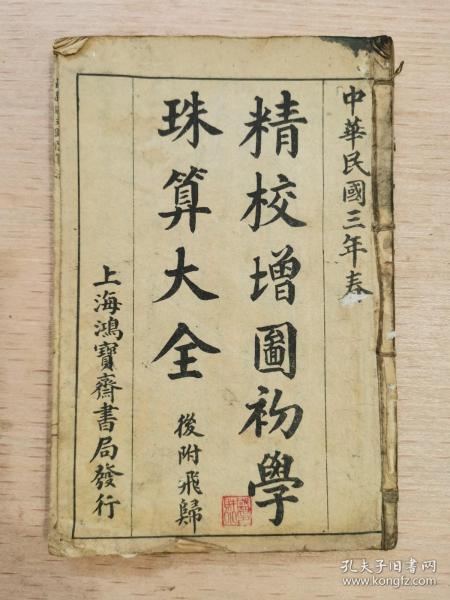 中華民國三年春
精校增圖初學
珠算大全
後附飛歸
上海鴻寶齋書局發行
孔夫子旧书网
www.kongfz.com